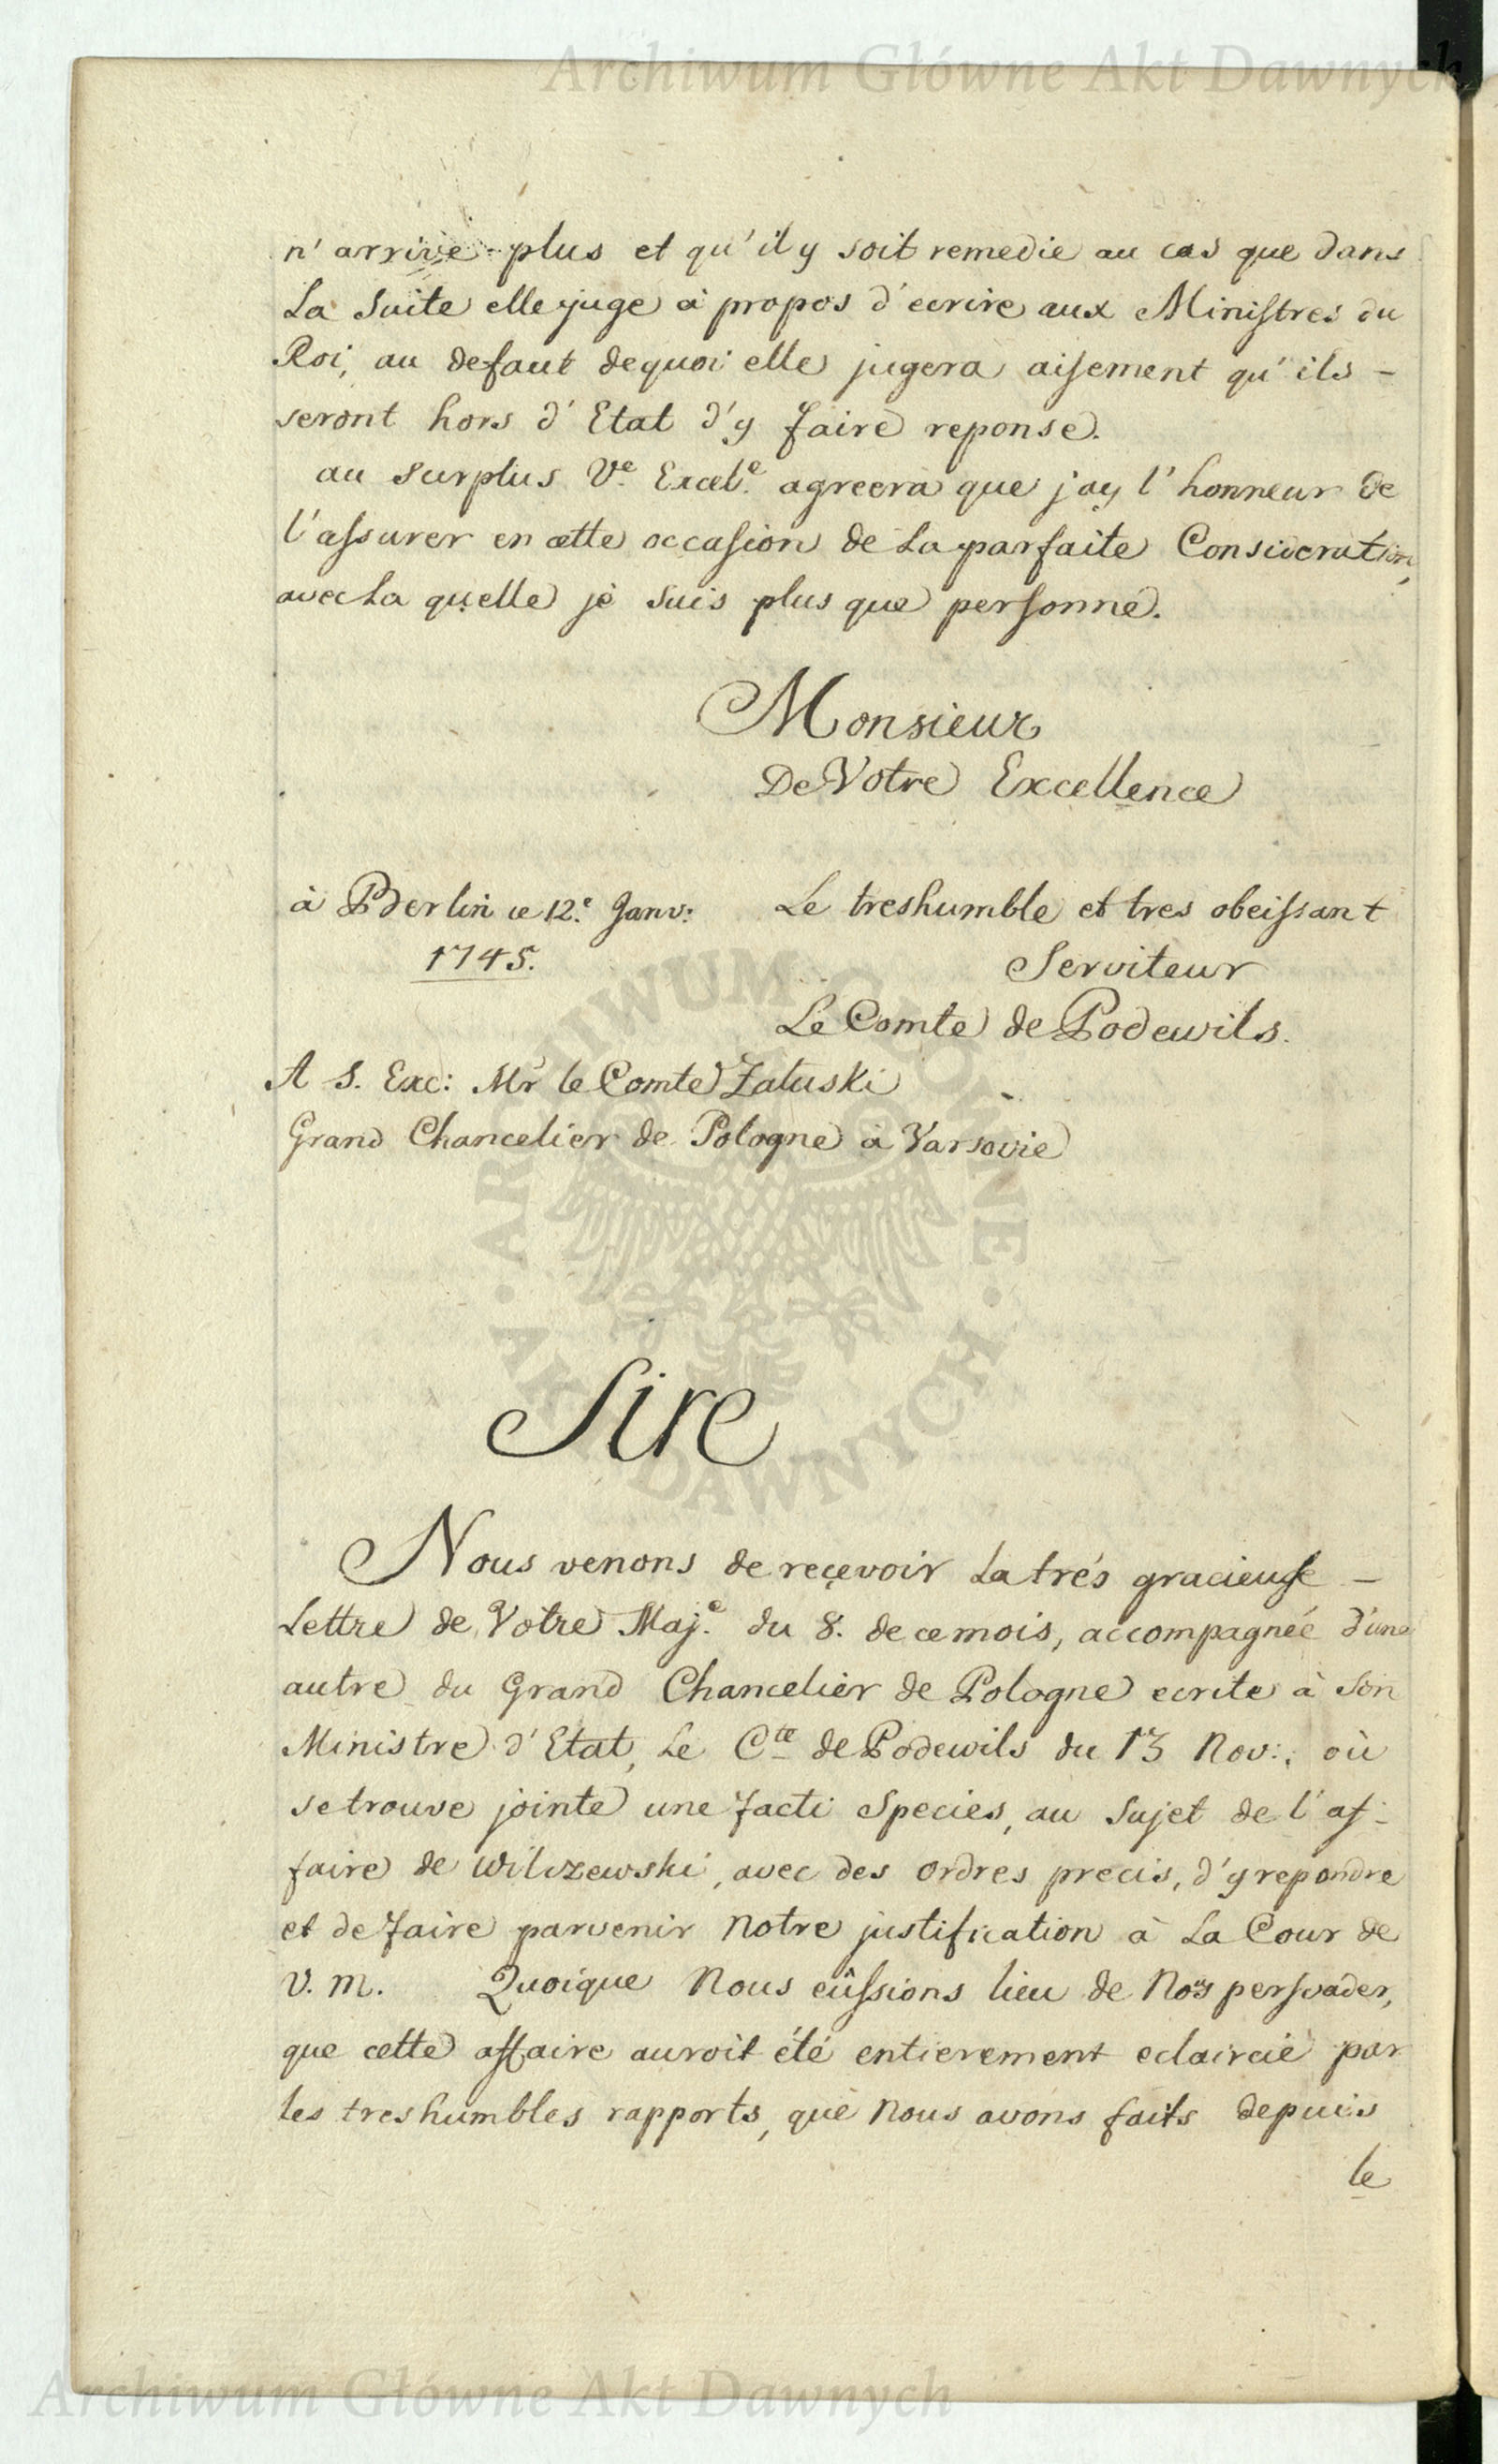 Archiwum Główne Akt Dawnych
n' arrive plus et qu'il y soit remedie au cas que dans
La Suite elle juge à propos d'ecrire aux Ministres du
Roi, au defaut dequoi elle jugera aisement qu'ils -
seront hors d'Etat d'y faire reponse.
au surplus Ve. Excele. agreera que j'ay l'honneur de
l'assurer en cette occasion de La parfaite Consideration,
avec La quelle je suis plus que personne.
Monsieur
De Votre Excellence
à Berlin ce 12.e Janv: Le treshumble et tres obeissant
1745. Serviteur
Le Comte de Podewils.
A S. Exc: Mr le Comte Zaluski
Grand Chancelier de Pologne à Varsovie
ARCHIWUM GŁÓWNE · AKT DAWNYCH ·
Sire
Nous venons de reçevoir La trés gracieuse -
Lettre de Votre Maj.e du 8. de ce mois, accompagnée d'une
autre du Grand Chancelier de Pologne ecrite à Son
Ministre d'Etat, Le Cte de Podewils du 13 Nov:, où
se trouve jointe une facti Species, au Sujet de l'af-
faire de Wilczewski, avec des ordres precis, d'y repondre
et de faire parvenir notre justification à La Cour de
V. M. Quoique Nous eûssions lieu de Nous persvader,
que cette affaire auroit été entierement eclaircie par
les treshumbles rapports, que Nous avons faits depuis
le
Archiwum Główne Akt Dawnych